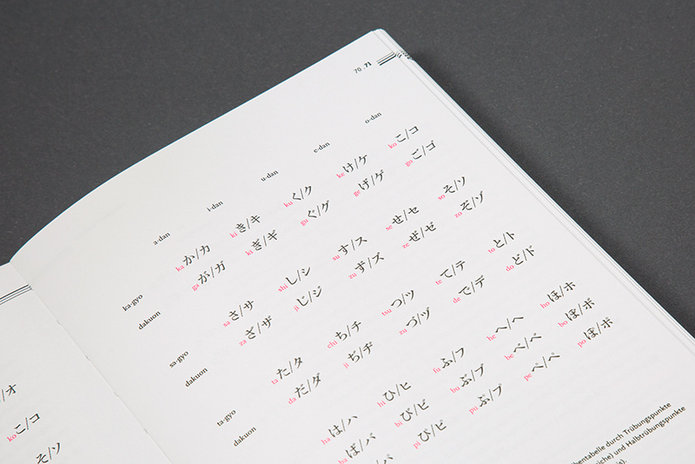 /オ
ko こ/コ
そ/ソ
70 . 71
a-dan i-dan u-dan e-dan o-dan
ka-gyo ka か/カ ki き/キ ku く/ク ke け/ケ ko こ/コ
dakuon ga が/ガ ぎ/ギ gu ぐ/グ ge げ/ゲ go ご/ゴ
sa-gyo sa さ/サ shi し/シ su す/ス se せ/セ so そ/ソ
dakuon za ざ/ザ ji じ/ジ zu ず/ズ ze ぜ/ゼ zo ぞ/ゾ
ta-gyo ta た/タ chi ち/チ tsu つ/ツ te て/テ to と/ト
dakuon da だ/ダ ji ぢ/ヂ zu づ/ヅ de で/デ do ど/ド
ha は/ハ hi ひ/ヒ fu ふ/フ he へ/ヘ ho ほ/ホ
ba ば/バ bi び/ビ bu ぶ/ブ be べ/ベ bo ぼ/ボ
pi ぴ/ピ pu ぷ/プ pe ぺ/ペ po ぽ/ポ
bentabelle durch Trübungspunkte
iche) und Halbtrübungspunkte